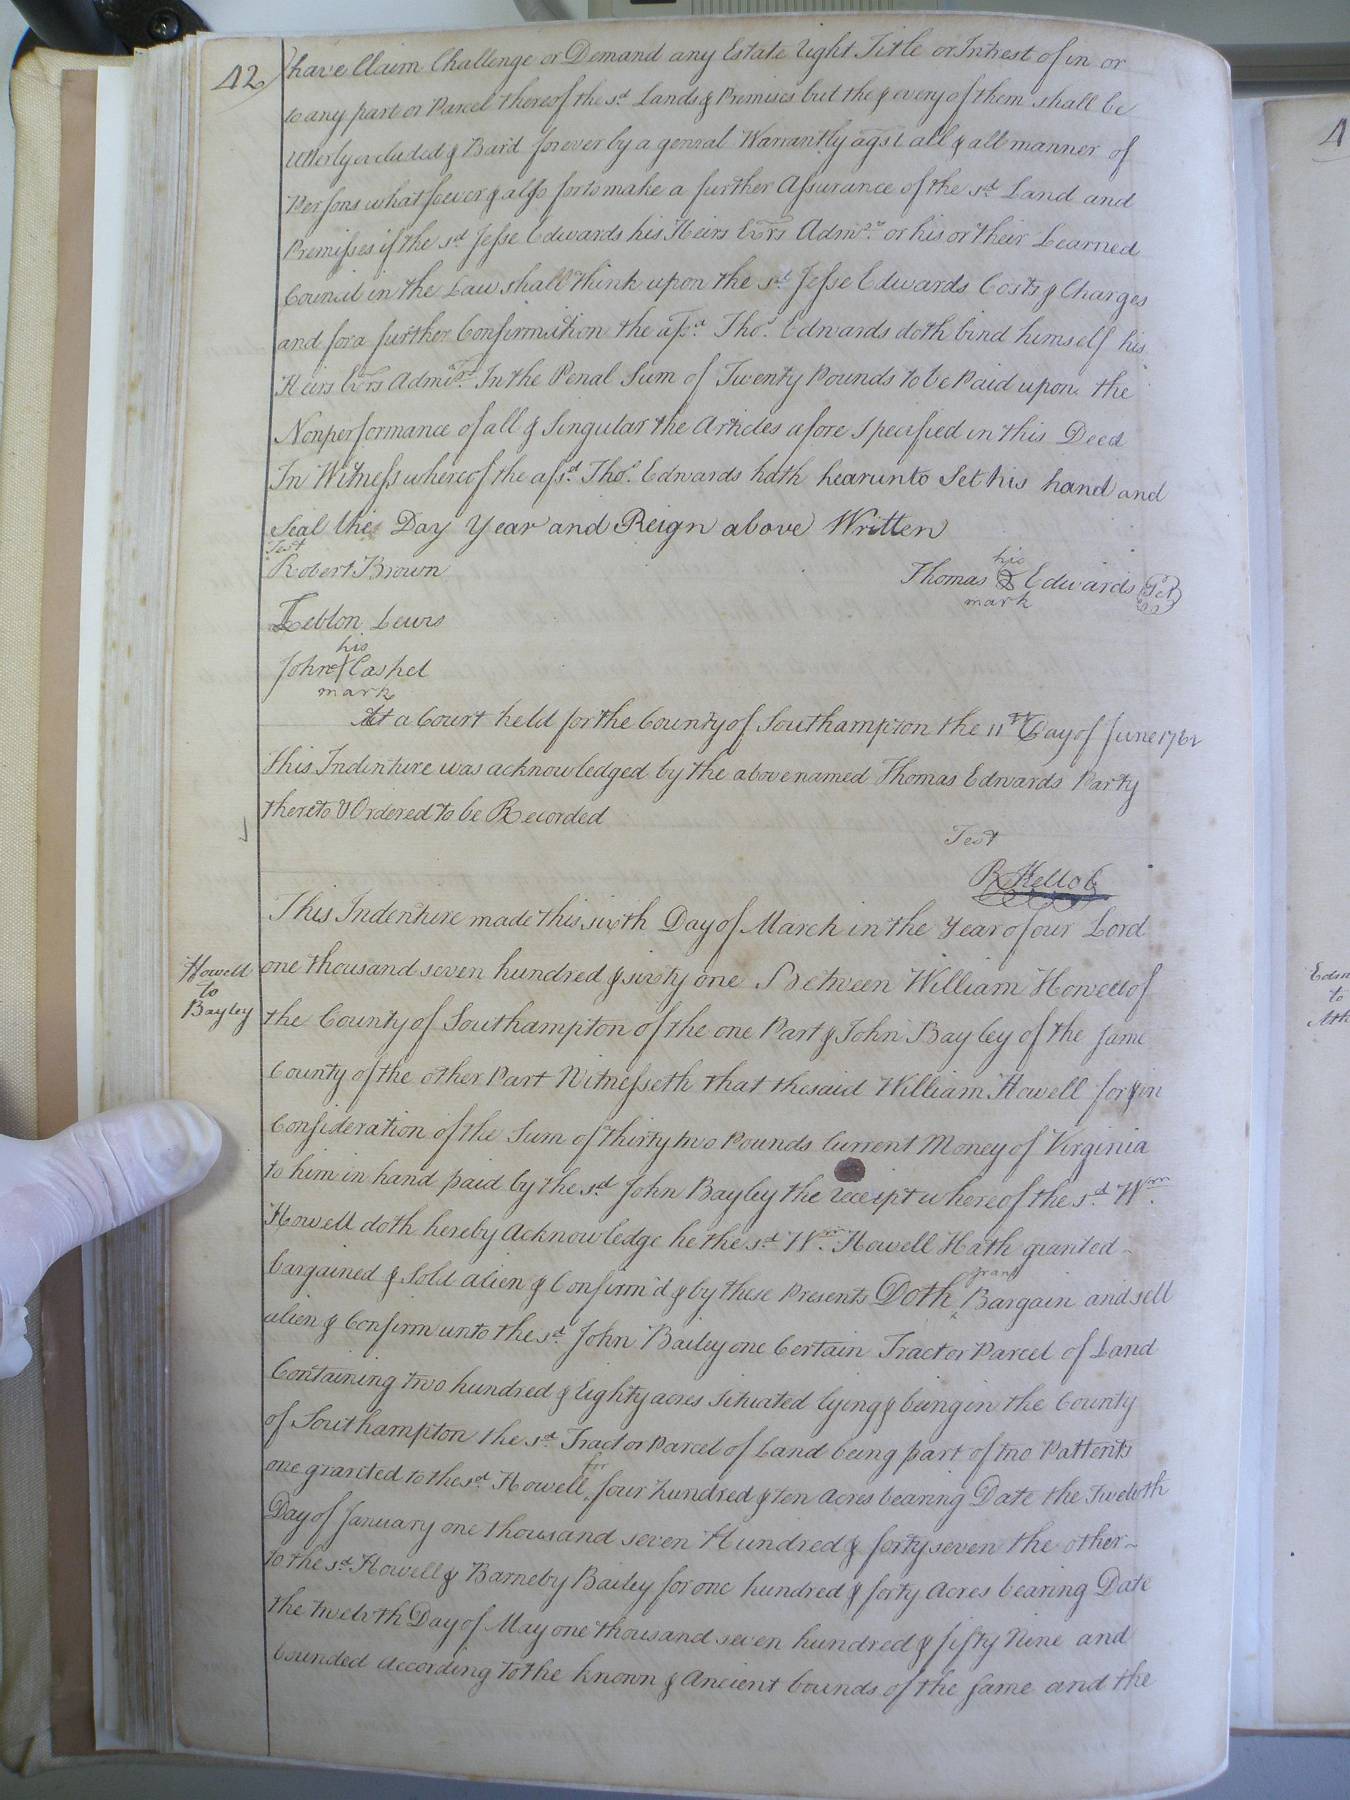 42
have Claim Challenge or Demand any Estate Right Title or Intrest of in or
to any part or Parcel thereof the sd Lands & Premises but the & every of them shall be
Utterly excluded & Bard forever by a genral Warrantly agst all & all manner of
Persons whatsoever & also for to make a further Assurance of the sd Land and
Premisses if the sd Jesse Edwards his Heirs Exrs Admrs or his or their Learned
Council in the Law shall think upon the sd Jesse Edwards Costs & Charges
and for a further Confirmation the afsd Thos Edwards doth bind himself his
Heirs Exrs Admrs In the Penal Sum of Twenty Pounds to be Paid upon the
Nonperformance of all & Singular the Articles afore specified in this Deed
In Witness whereof the afsd Thos Edwards hath hearunto Set his hand and
Seal the Day Year and Reign above Written
Test
Robert Brown
Thomas his mark Edwards
Lewis
John his mark Cashel
At a Court held for the County of Southampton the 11th Day of June 1761
This Indenture was acknowledged by the above named Thomas Edwards Party
thereto & Ordered to be Recorded
Test
R Kello C
This Indenture made this sixth Day of March in the Year of our Lord
Howell
to
Bayley
one thousand seven hundred & sixty one Between William Howell of
the County of Southampton of the one Part & John Bayley of the same
County of the other Part Witnesseth that the said William Howell for & in
Consideration of the Sum of thirty two Pounds Current Money of Virginia
to him in hand paid by the sd John Bayley the receipt whereof the sd Wm
Howell doth hereby Acknowledge he the sd Wm Howell Hath granted
bargained & Sold alien & Confirm'd & by these Presents Doth grant Bargain and sell
alien & Confirm unto the sd John Bailey one Certain Tract or Parcel of Land
Containing two hundred & Eighty acres Situated lying & being in the County
of Southampton the sd Tract or Parcel of Land being part of two Pattents
one granted to the sd Howell for four hundred & ten Acres bearing Date the twelvth
Day of January one thousand seven Hundred & forty seven the other
to the sd Howell & Barneby Bailey for one hundred & forty Acres bearing Date
the twelvth Day of May one thousand seven hundred & fifty Nine and
bounded According to the known & Ancient bounds of the same and the